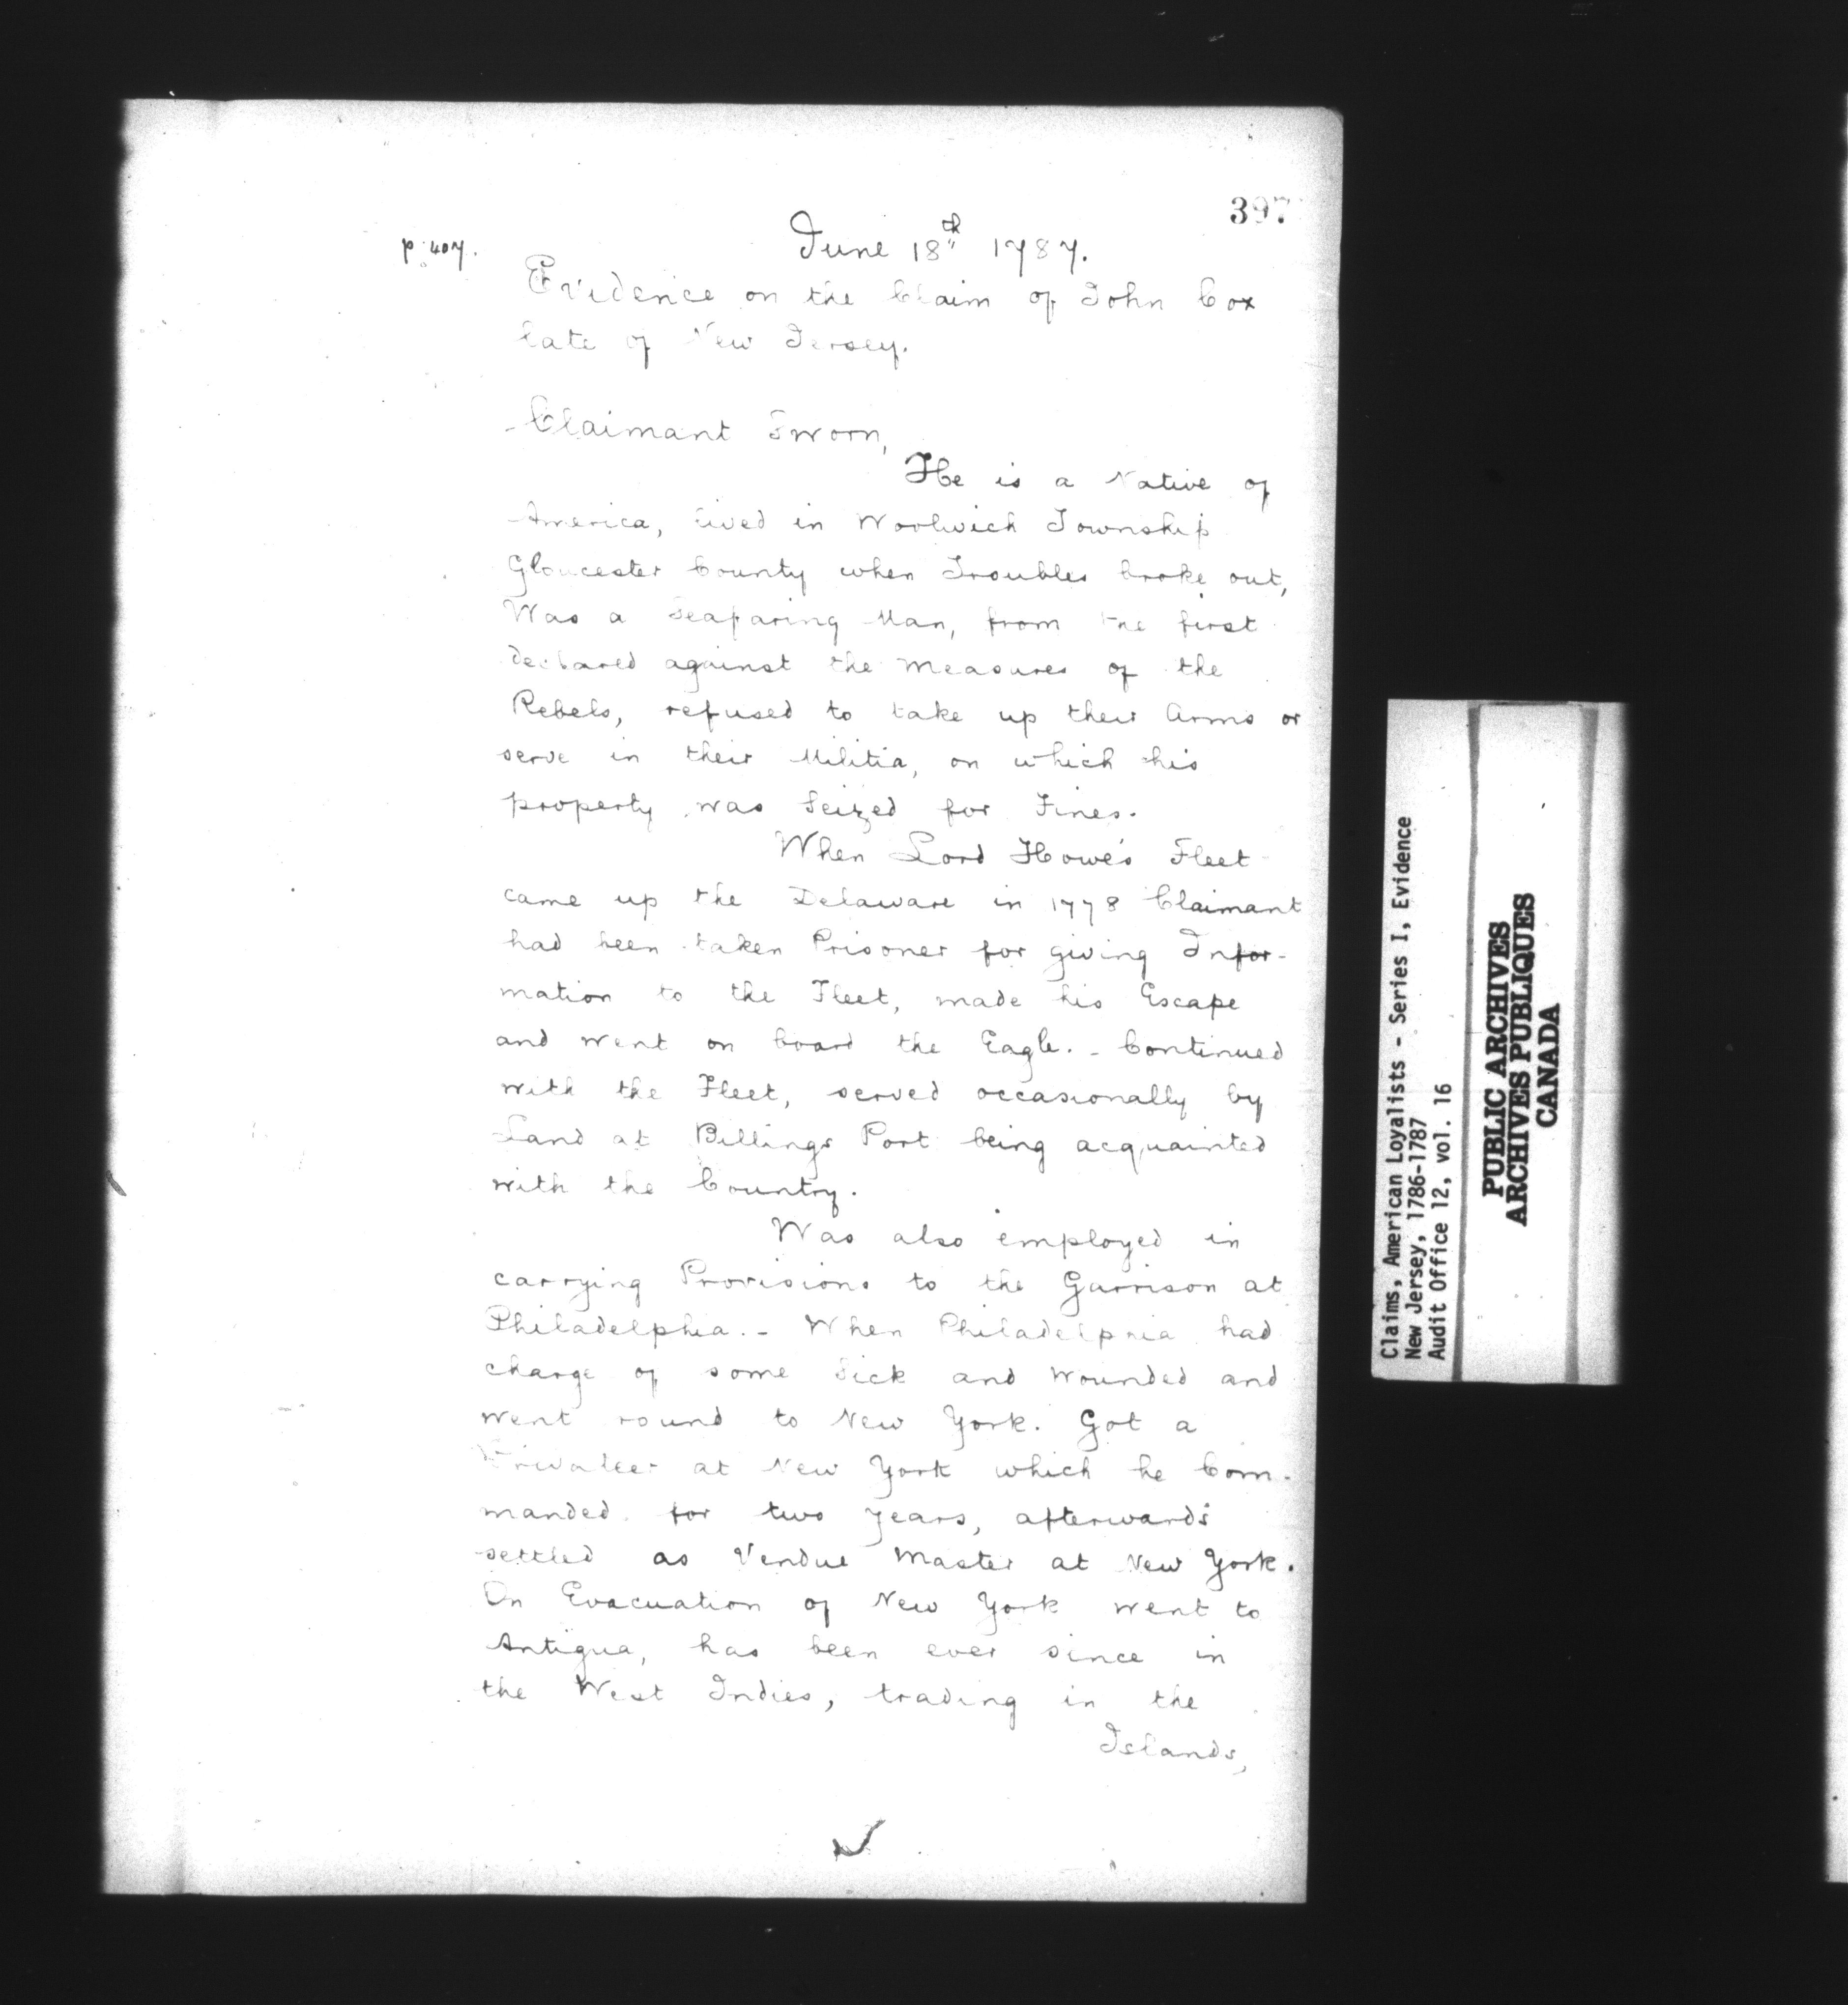 397
p. 407.
June 18th 1787.
Evidence on the Claim of John Cox
late of New Jersey.
Claimant Sworn,
He is a Native of
America, lived in Woolwich Township
Gloucester County when Troubles broke out,
Was a Seafaring Man, from the first
declared against the Measures of the
Rebels, refused to take up their Arms or
serve in their Militia, on which his
property was Seized for Fines.
When Lord Howe's Fleet
came up the Delaware in 1778 Claimant
had been taken Prisoner for giving Infor-
mation to the Fleet, made his Escape
and went on board the Eagle. - Continued
with the Fleet, served occasionally by
Land at Billings Port being acquainted
with the Country.
Was also employed in
carrying Provisions to the Garrison at
Philadelphia. - When Philadelphia had
charge of some Sick and Wounded and
went round to New York. Got a
Privateer at New York which he Com-
manded for two years, afterwards
settled as Vendue Master at New York.
On Evacuation of New York went to
Antigua, has been ever since in
the West Indies, trading in the
Islands,
Claims, American Loyalists - Series I, Evidence
New Jersey, 1786-1787
Audit Office 12, vol. 16
PUBLIC ARCHIVES
ARCHIVES PUBLIQUES
CANADA